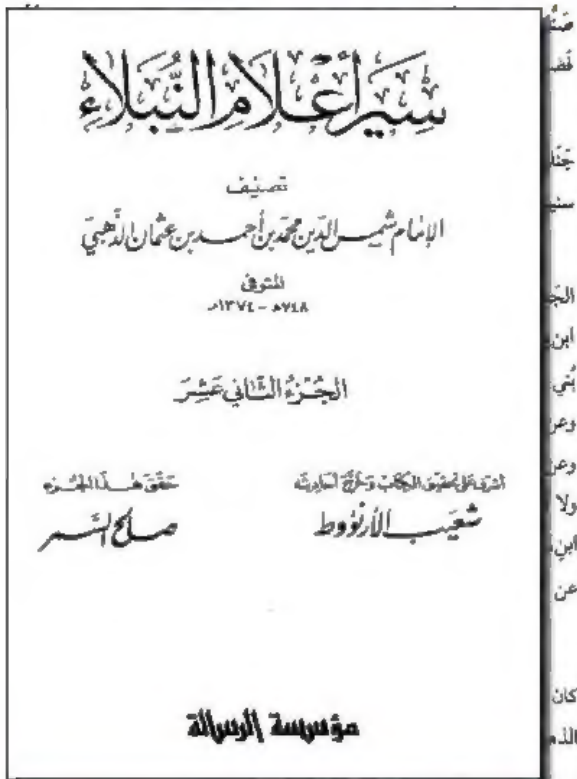 سير أعلام النبلاء
تصنيف
الإمام شمس الدين محمد بن أحمد بن عثمان الذهبي
المتوفى
٧٤٨هـ - ١٣٧٤م
الجزء الثاني عشر
أشرف على تحقيق الكتاب وخرج أحاديثه
شعيب الأرنؤوط
حقق هذا الجزء
صالح السمر
مؤسسة الرسالة
ابن
وعن
ولا
عن
كان